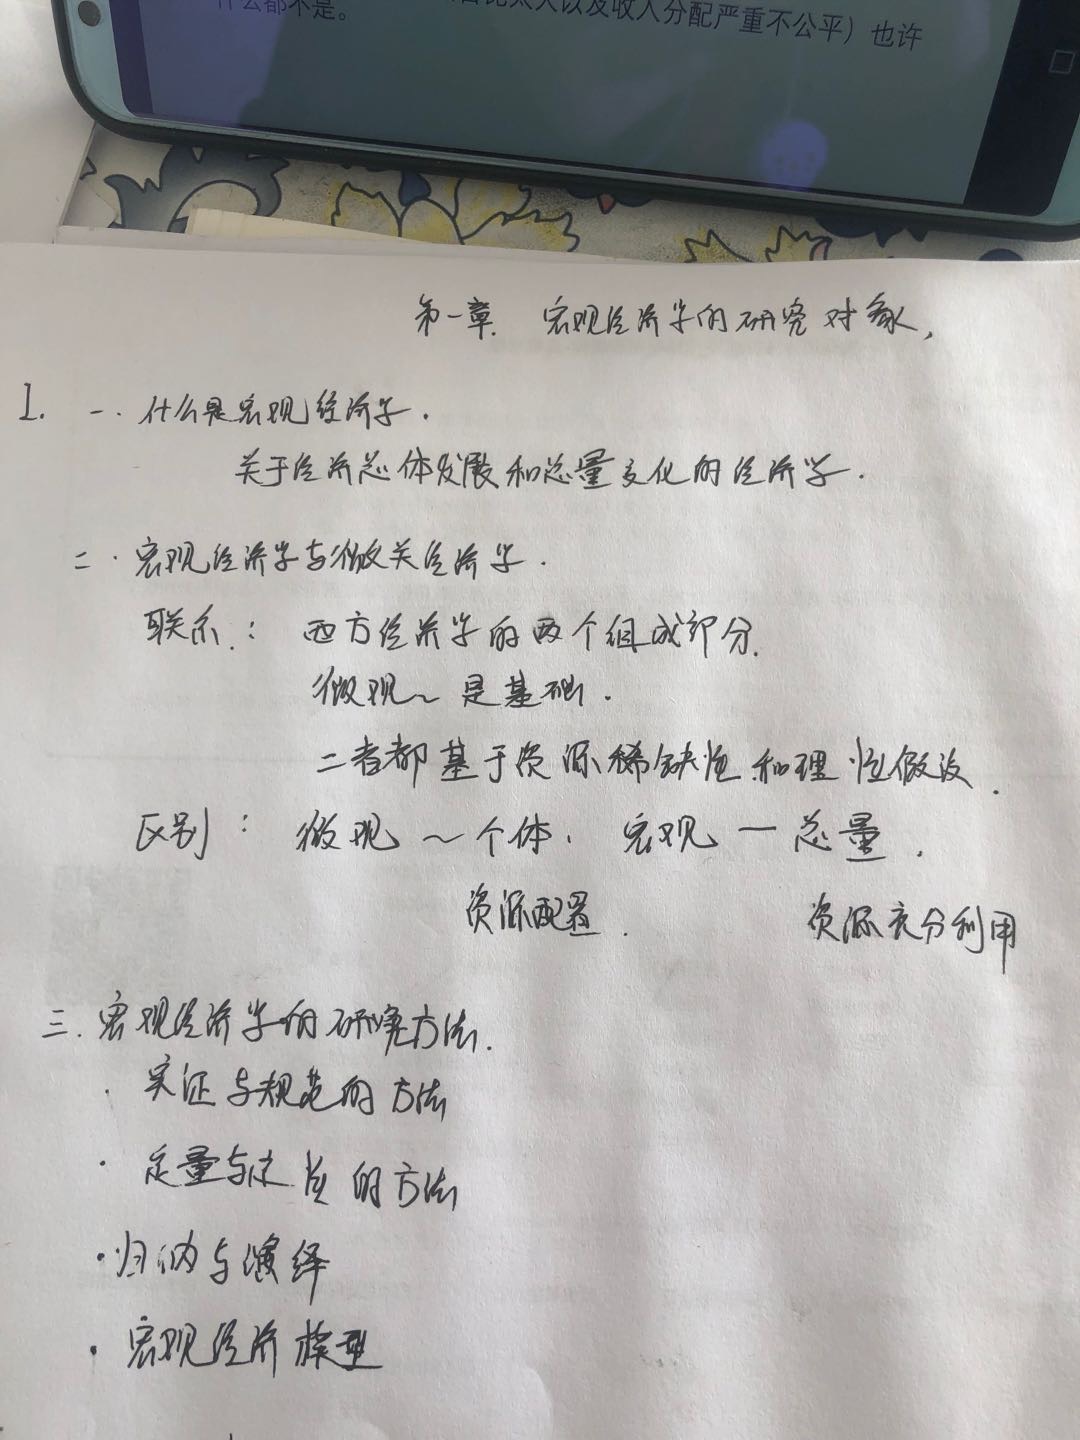 什么都不是。
以及收入分配严重不公平）也许
第一章. 宏观经济学的研究对象,
1. 一. 什么是宏观经济学.
关于经济总体发展和总量变化的经济学.
二. 宏观经济学与微关经济学.
联系: 西方经济学的两个组成部分.
微观~是基础.
二者都基于资源稀缺性和理性假设.
区别: 微观~个体. 宏观—总量.
资源配置. 资源充分利用
三. 宏观经济学的研究方法.
· 实证与规范的方法
· 定量与定性的方法
· 归纳与演绎
· 宏观经济模型